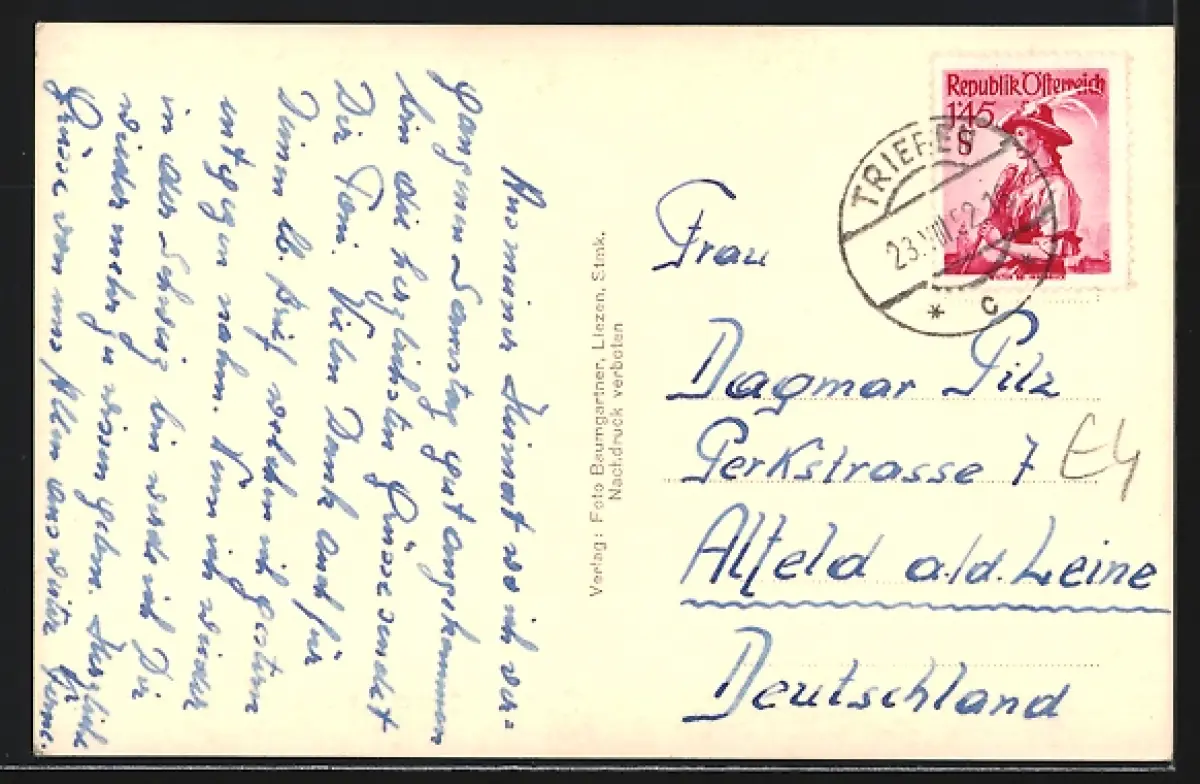 Aus meiner Heimat wo ich ver-
gangenen Samstag gut angekommen
bin die herzlichsten Grüsse sendet
Dir Toni. Vielen Dank auch für
Deinen lb. Brief welchen ich gestern
entgegen nahm. Wenn ich wieder
in der Schweiz bin werde ich Dir
wieder mehr zu wissen geben. Herzliche
Grüsse von uns Allen aus
Verlag: Foto Baumgartner, Liezen, Stmk.
Nachdruck verboten
Republik Österreich
1'45
S
TRIEBEN
23.VIII.52
* C *
Frau
Dagmar Pilz
Perkstrasse 7
E4
Alfeld a./d. Leine
Deutschland